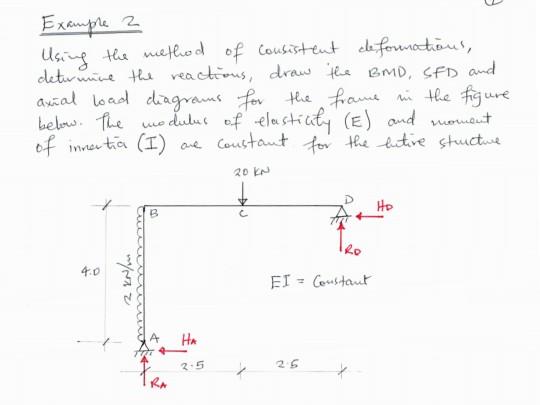 Example 2
Using the method of consistent deformations,
determine the reactions, draw the BMD, SFD and
axial load diagrams for the frame in the figure
below. The modulus of elasticity (E) and moment
of innertia (I) are constant for the entire structure
20 KN
B
C
D
HD
RD
4.0
2 KN/m
EI = Constant
A
HA
2.5
2.5
RA